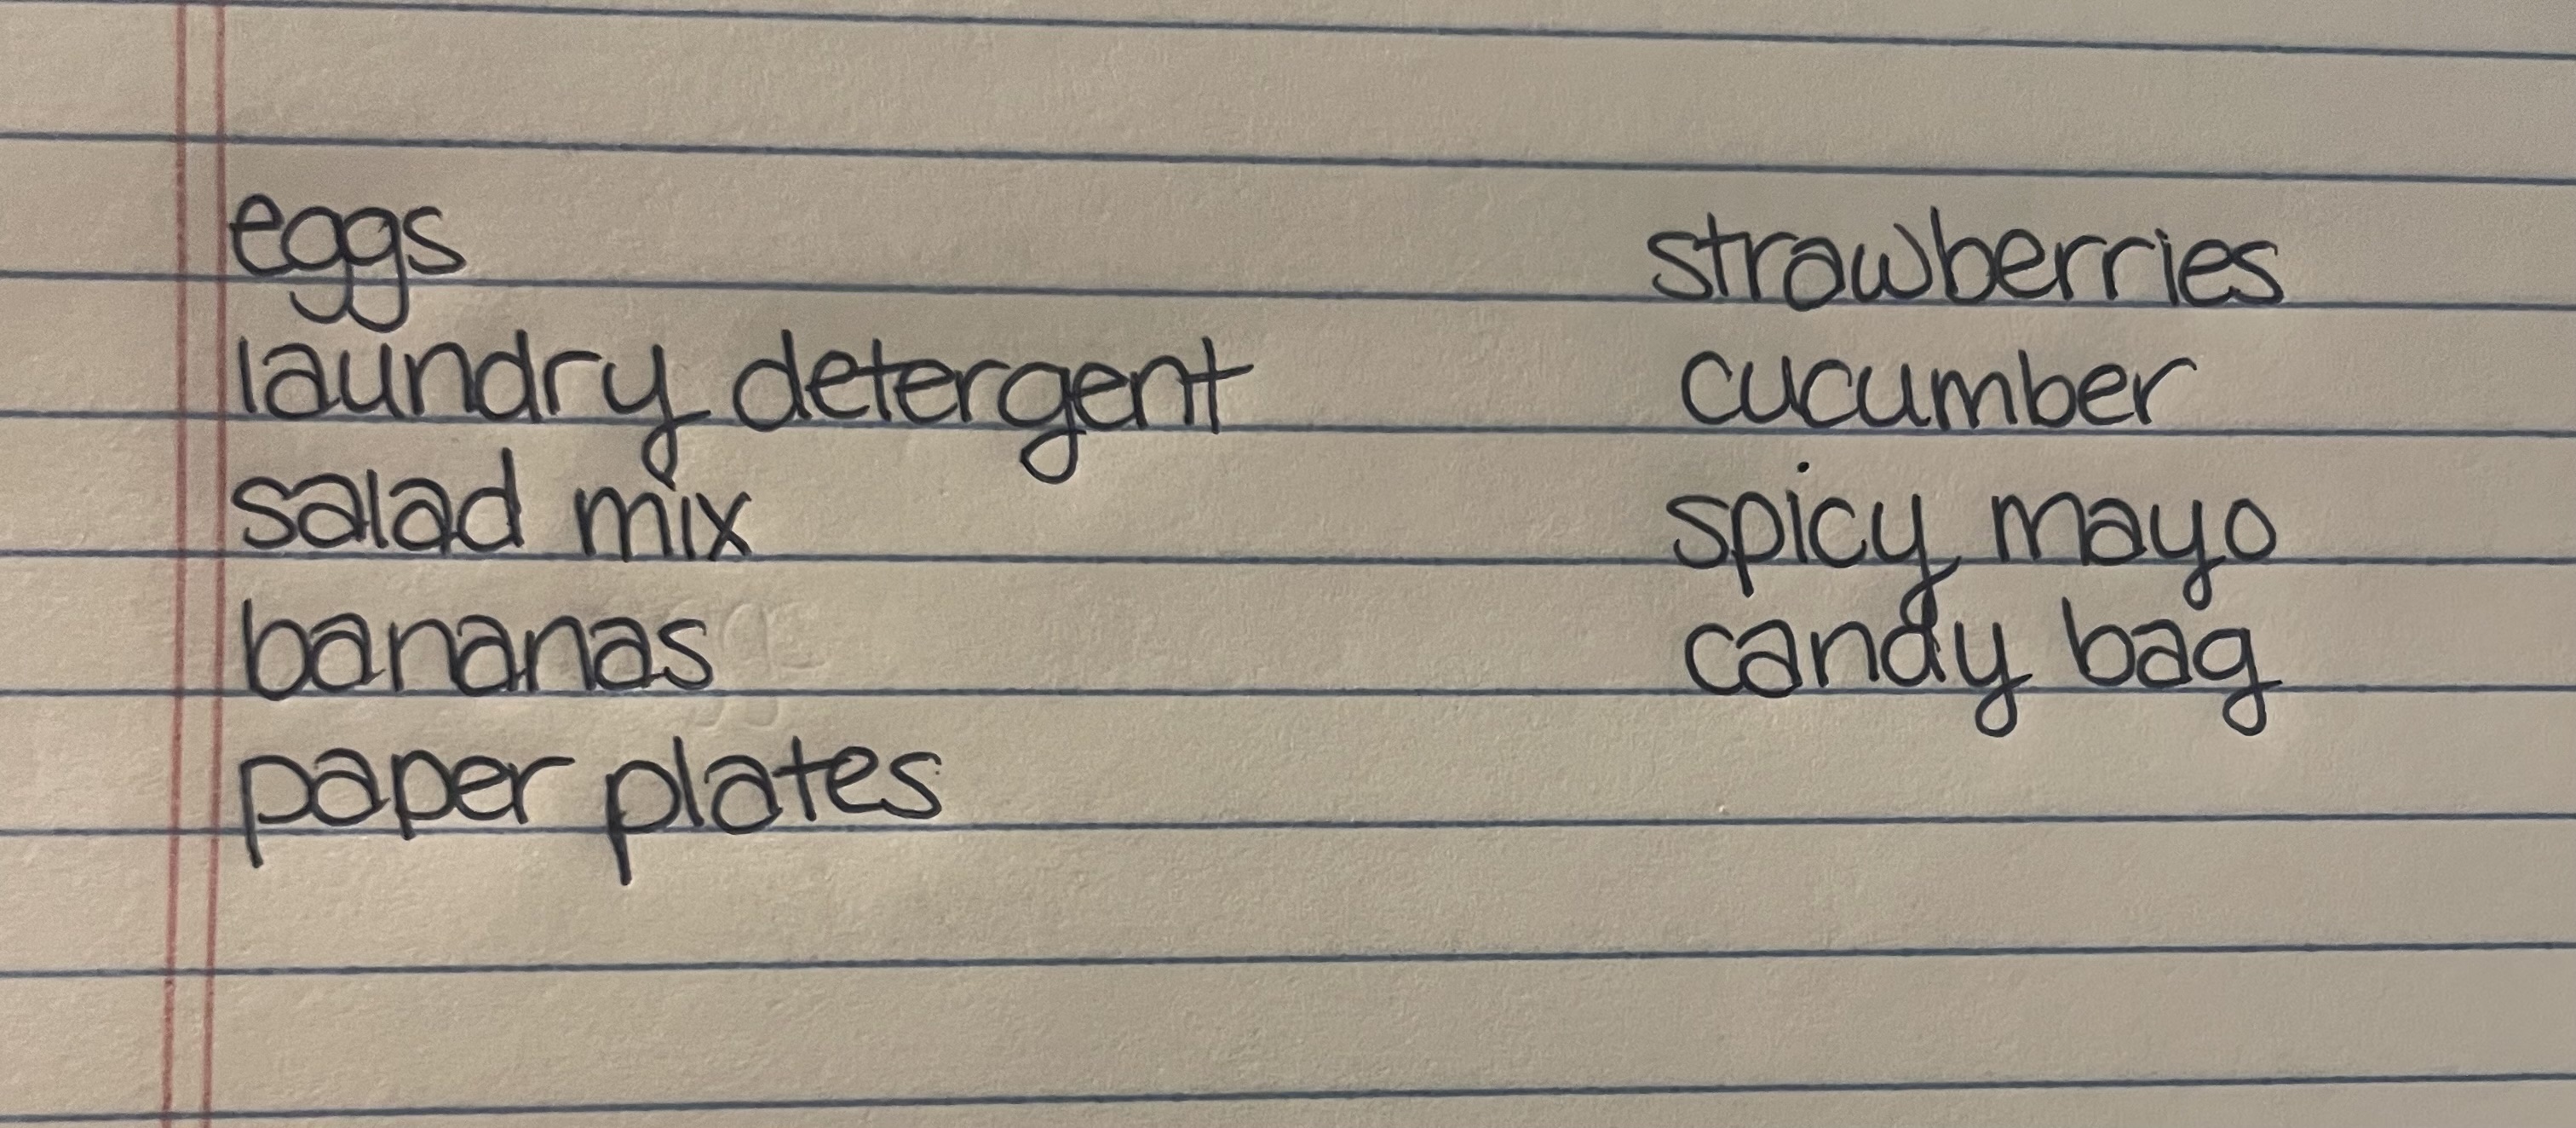 eggs
laundry detergent
salad mix
bananas
paper plates
strawberries
cucumber
spicy mayo
candy bag